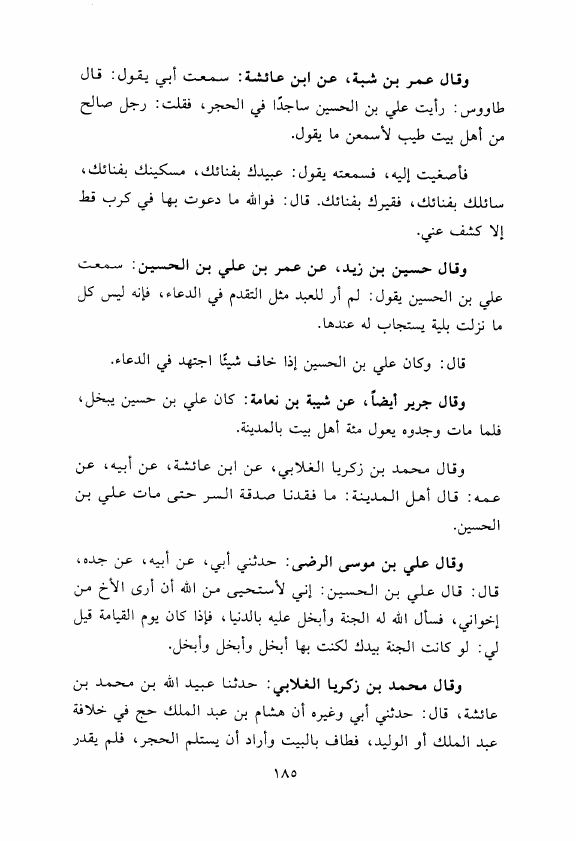 وقال عمر بن شبة، عن ابن عائشة: سمعت أبي يقول: قال
طاووس: رأيت علي بن الحسين ساجدًا في الحجر، فقلت: رجل صالح
من أهل بيت طيب لأسمعن ما يقول.
فأصغيت إليه، فسمعته يقول: عبيدك بفنائك، مسكينك بفنائك،
سائلك بفنائك، فقيرك بفنائك. قال: فوالله ما دعوت بها في كرب قط
إلا كشف عني.
وقال حسين بن زيد، عن عمر بن علي بن الحسين: سمعت
علي بن الحسين يقول: لم أر للعبد مثل التقدم في الدعاء، فإنه ليس كل
ما نزلت بلية يستجاب له عندها.
قال: وكان علي بن الحسين إذا خاف شيئًا اجتهد في الدعاء.
وقال جرير أيضاً، عن شيبة بن نعامة: كان علي بن حسين يبخل،
فلما مات وجدوه يعول مئة أهل بيت بالمدينة.
وقال محمد بن زكريا الغلابي، عن ابن عائشة، عن أبيه، عن
عمه: قال أهل المدينة: ما فقدنا صدقة السر حتى مات علي بن
الحسين.
وقال علي بن موسى الرضى: حدثني أبي، عن أبيه، عن جده،
قال: قال علي بن الحسين: إني لأستحيى من الله أن أرى الأخ من
إخواني، فسأل الله له الجنة وأبخل عليه بالدنيا، فإذا كان يوم القيامة قيل
لي: لو كانت الجنة بيدك لكنت بها أبخل وأبخل وأبخل.
وقال محمد بن زكريا الغلابي: حدثنا عبيد الله بن محمد بن
عائشة، قال: حدثني أبي وغيره أن هشام بن عبد الملك حج في خلافة
عبد الملك أو الوليد، فطاف بالبيت وأراد أن يستلم الحجر، فلم يقدر
١٨٥